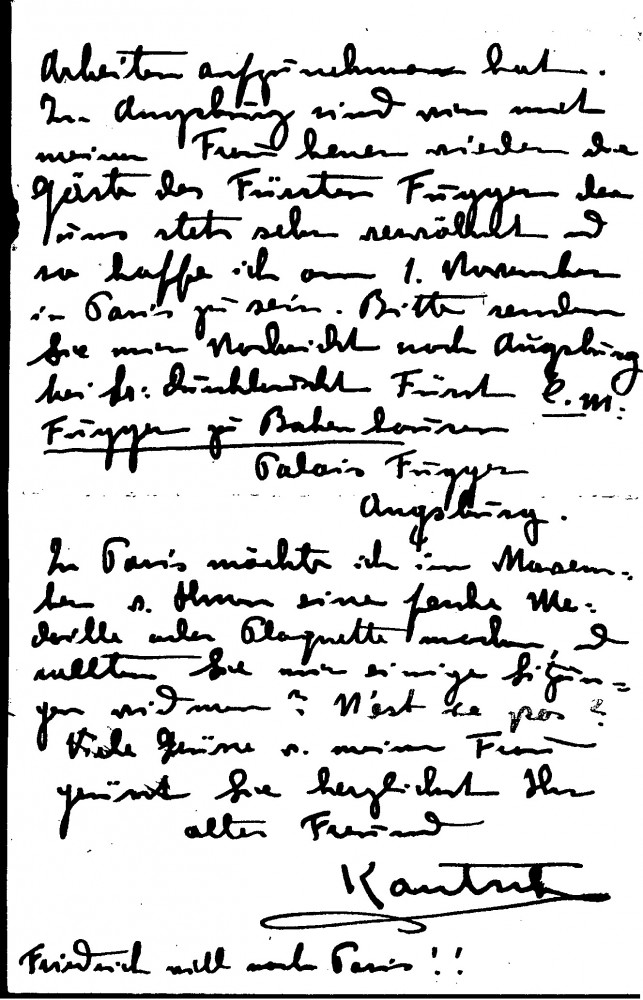 Arbeiten aufzunehmen hat.
In Augsburg sind wir mit
meiner Frau heuer wieder die
Gäste des Fürsten Fugger der
uns stets sehr verwöhnt und
so hoffe ich am 1. November
in Paris zu sein. Bitte senden
Sie mir Nachricht nach Augsburg
bei Sr: Durchlaucht Fürst C. M:
Fugger zu Babenhausen
Palais Fugger
Augsburg.
In Paris möchte ich im Novem-
ber v. Ihnen eine fesche Me-
daille oder Plaquette machen, u
wollten Sie mir einige Sitzun=
gen widmen? N'est ce pas?
Viele Grüsse v. meiner Frau
grüsst Sie herzlichst Ihr
alter Freund
Kautsch
Friedrich will nach Paris!!